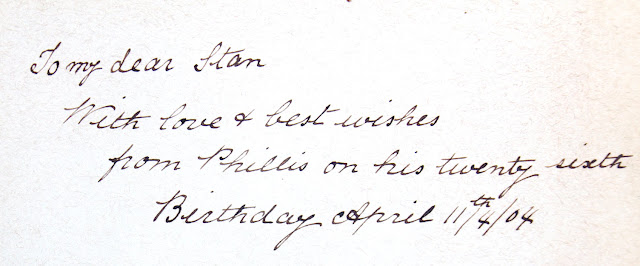 To my dear Stan
With love & best wishes
from Phillis on his twenty sixth
Birthday April 11th/4/04